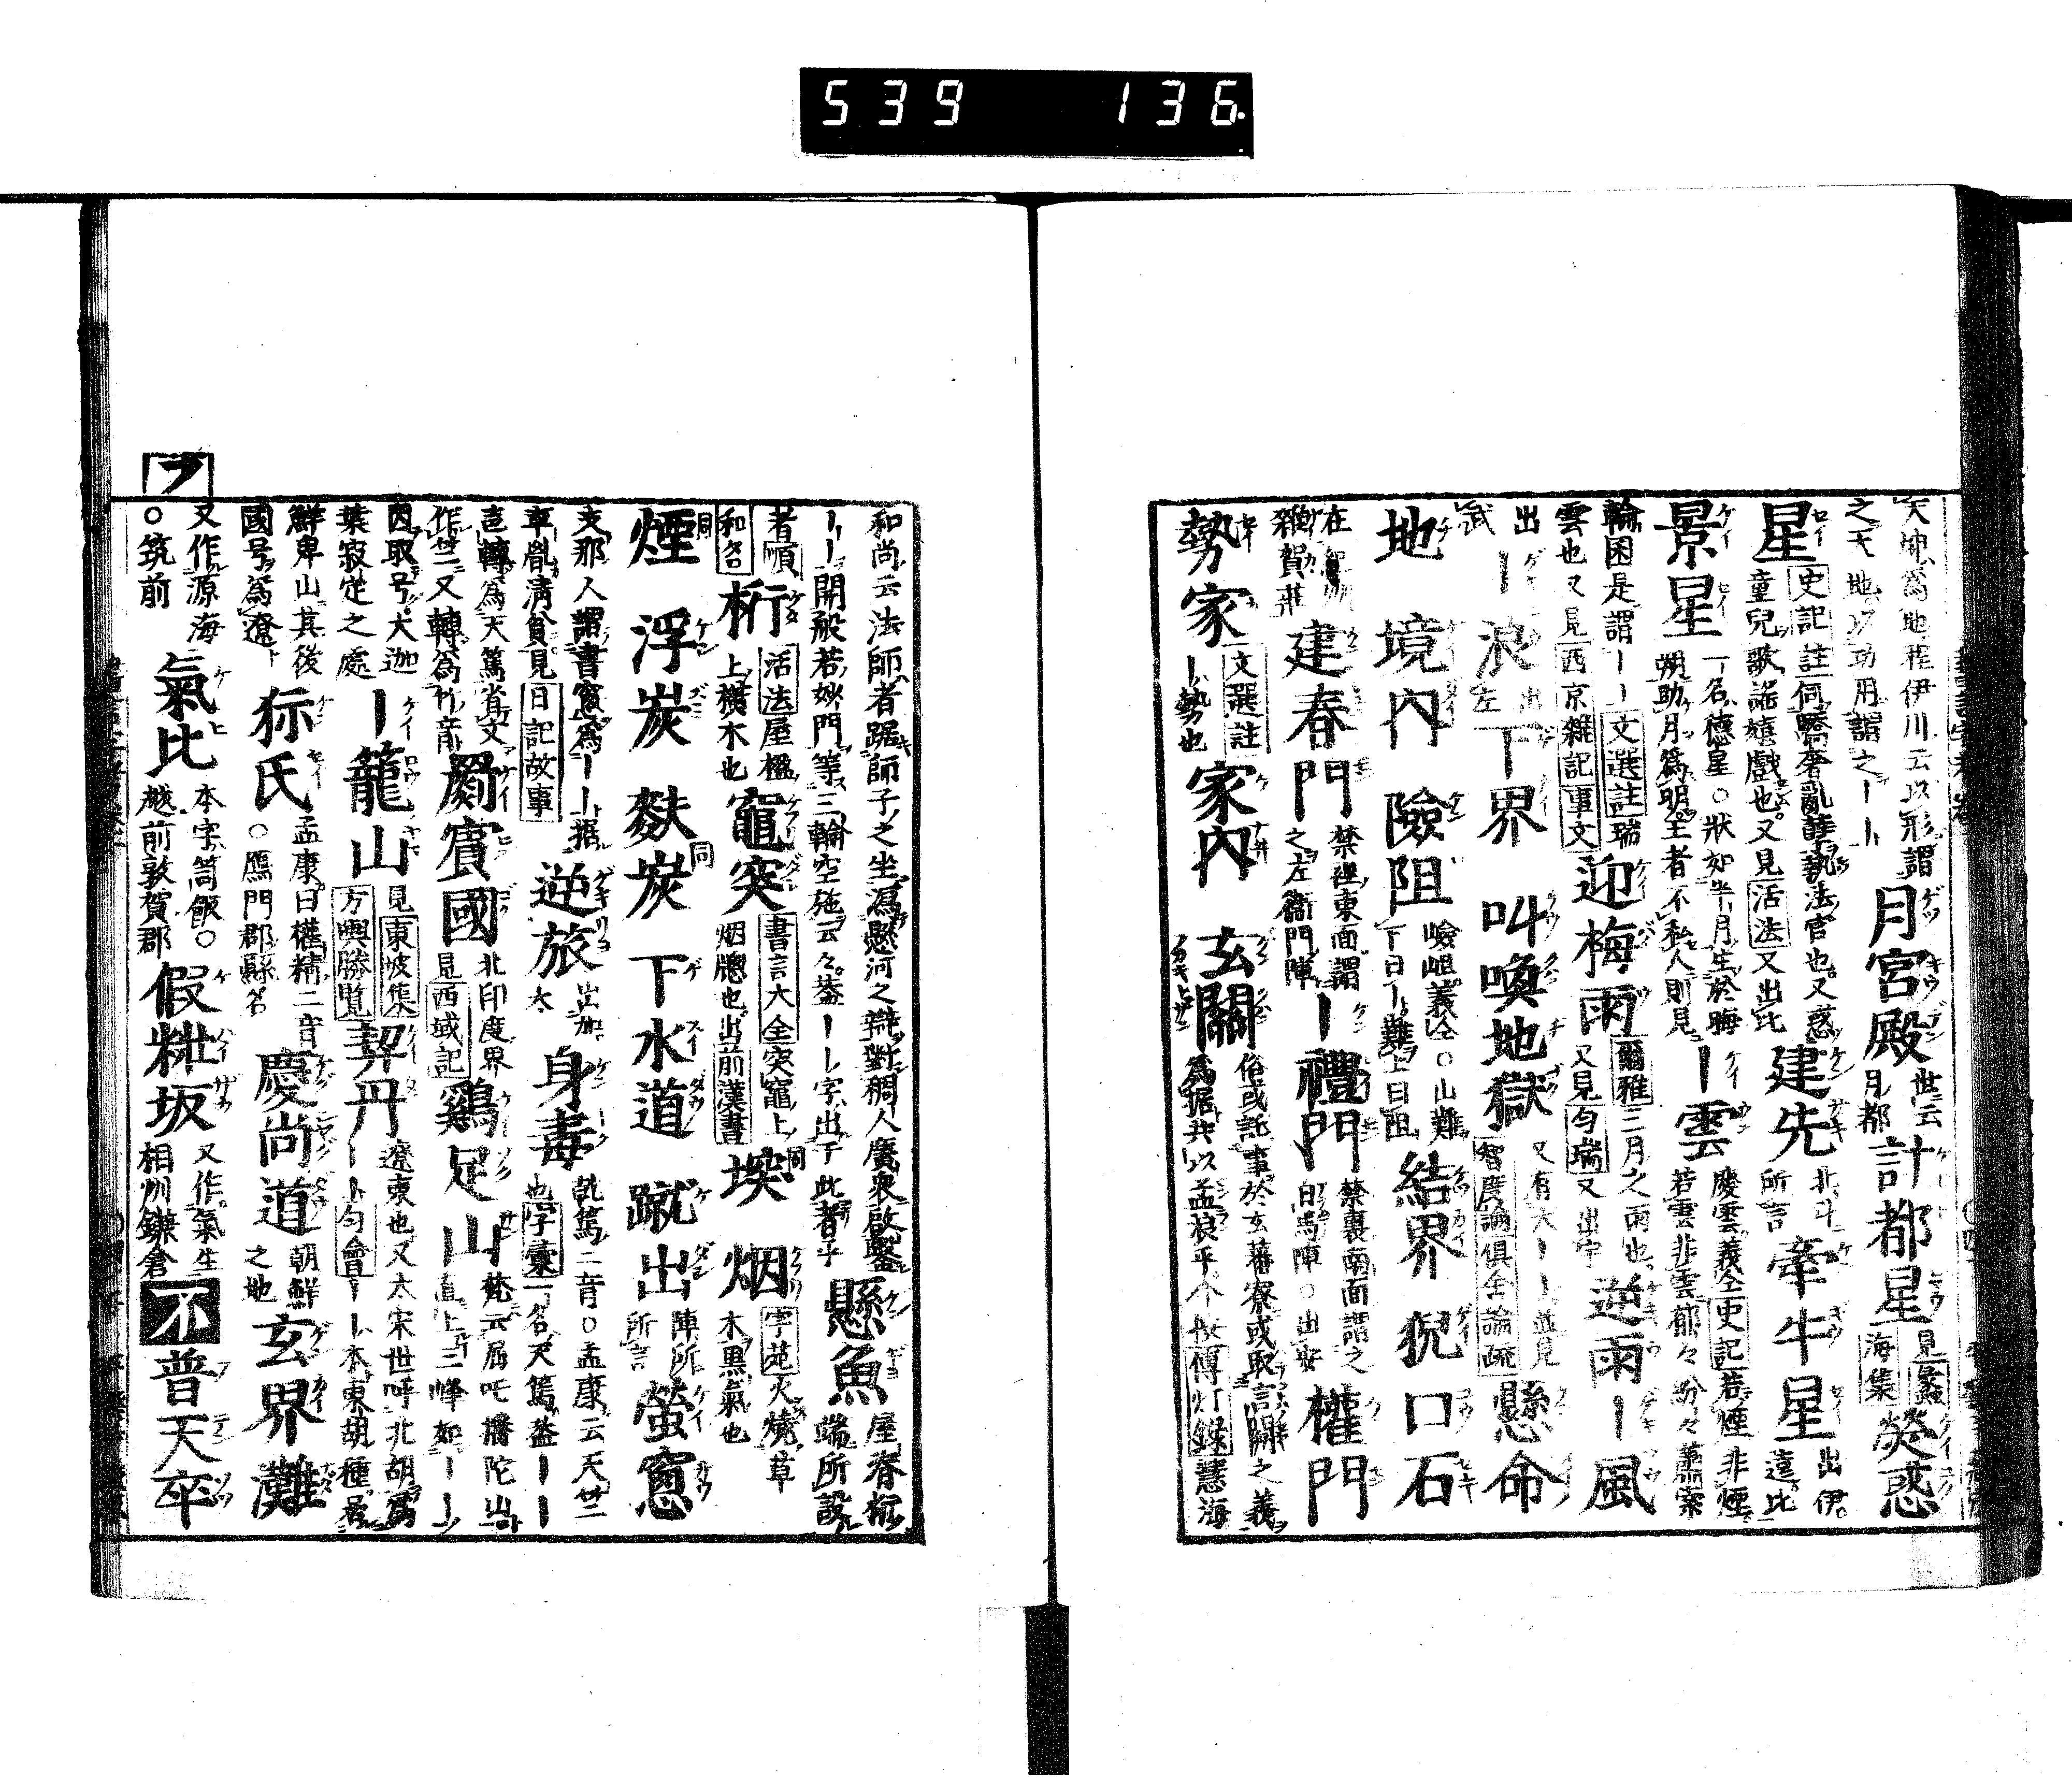 539 136
天坤為地程伊川云以形謂之天地以功用謂之〡〡 月宮殿 世云月都 計都星 見蠡海集 熒惑
星 史記註伺驕奢亂孽執法官也又惑童兒歌謡嬉戯也又見活法又出比 建先 北斗所言 牽牛星 出伊遠比
景星 一名德星○狀如半月生於晦朔助月為明王者不私人則見 〡雲 慶雲義仝史記若煙非煙若雲非雲郁々紛々蕭索
輪囷是謂〡〡文選註瑞雲也又見西京雜記事文 迎梅雨 爾雅三月之雨也又見匀瑞又出 逆雨 〡風
出武 〡浪 出左 下界 叫喚地獄 又有大〡〡並見智度論俱舎論疏 懸命
地 境内 險阻 嶮岨義仝○山難下曰〡難上曰阻 結界 猊口石
在 雜賀莊 建春門 禁裡東面謂之左衞門陣 〡禮門 禁裏南面謂之白馬陣 權門
勢家 文選註〡勢也 家内 玄關 俗或託事於玄蕃寮或取言關之義為据共以孟浪乎 傅灯録慧海
和尚云法師者踞師子之坐瀉懸河之辯對稠人廣衆啟鑿〡〡開般若妙門等三輪空施云々蓋〡〡字出于此者乎 懸魚 屋脊桁端所設
者順和名 桁 活法屋楹上横木也 竈突 書言大全突竈上烟牕也出前漢書 堗 同 烟 字苑火燒草木黒氣也
煙 同 浮炭 麩炭 同 下水道 蹴出 陣所所言 螢窓
支那人謂書窻為〡〡据車胤淸貧見日記故事 逆旅 出太 身毒 乾篤二音○孟康云天竺也字彙一名天篤盖〡〡
音轉為天篤省文作竺又轉為竹音 罽賓國 北印度界見西域記 鷄足山 梵云屈吒播陀山直上三峰如〡〡
因取号大迦葉寂定之處 〡籠山 見東坡集方輿勝覧 契丹 遼東也又大宋世呼北胡為〡〡匀會〡〡本東胡種居
鮮卑山其後國号為遼 狋氏 孟康曰權精二音○鴈門郡縣名 慶尚道 朝鮮之地 玄界灘
フ
又作源海○筑前 氣比 本字笥飯○越前敦賀郡 假粧坂 又作氣生相州鎌倉 不 普天卒